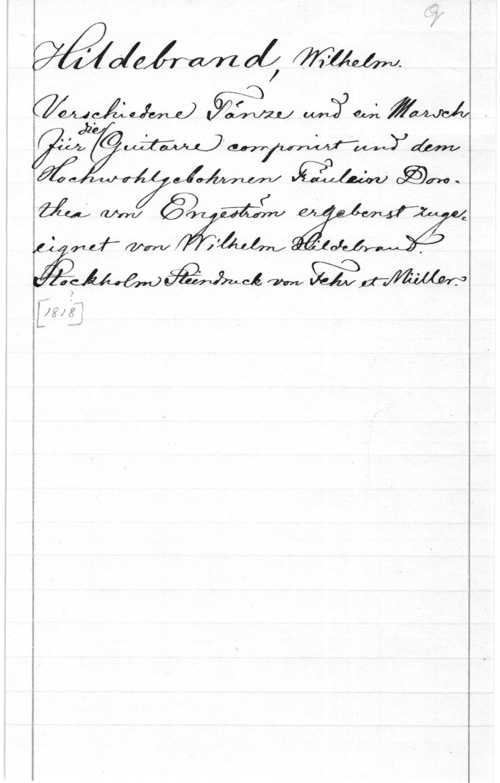 G
Hildebrand, Wilhelm.
Verschiedene Tänze und ein Marsch
für die Guitarre componirt und dem
Hochwohlgebohrnen Fräulein Doro-
thea von Engeström ergebenst zuge-
eignet von Wilhelm Hildebrand.
Stockholm Steindruck von Fehr et Müller.
[1818?]